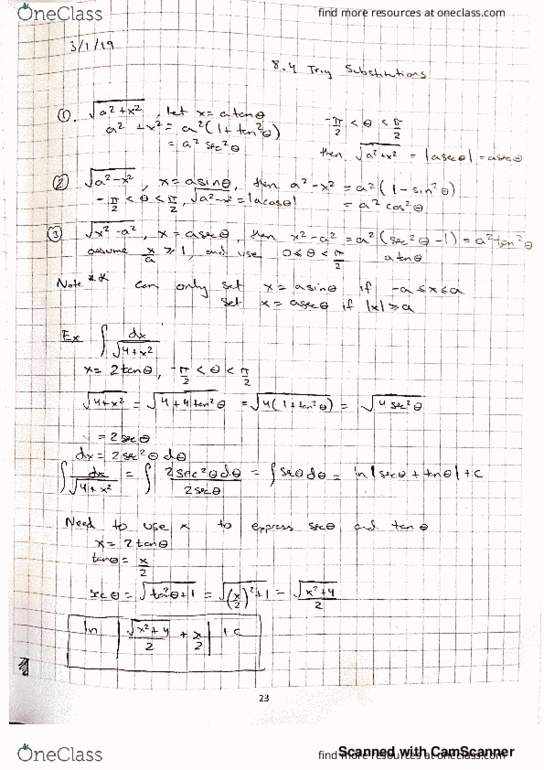 OneClass
find more resources at oneclass.com
3/1/19
8.4 Trig Substitutions
①. √(a²+x²), let x = a tanθ -π/2 < θ < π/2
a² + x² = a²(1 + tan²θ)
= a² sec²θ then √(a²+x²) = |a secθ| = a secθ
② √(a²-x²), x = a sinθ, then a²-x² = a²(1 - sin²θ)
-π/2 < θ < π/2, √(a²-x²) = |a cosθ| = a² cos²θ
③ √(x²-a²), x = a secθ, then x²-a² = a²(sec²θ - 1) = a² tan²θ
assume x/a ≥ 1, and use 0 ≤ θ < π/2 a tanθ
Note ** can only set x = a sinθ if -a ≤ x ≤ a
set x = a secθ if |x| ≥ a
Ex ∫ dx/√(4+x²)
x = 2 tanθ, -π/2 < θ < π/2
√(4+x²) = √(4+4tan²θ) = √(4(1+tan²θ)) = √(4 sec²θ)
= 2 secθ
dx = 2 sec²θ dθ
∫ dx/√(4+x²) = ∫ 2sec²θdθ/2secθ = ∫ secθdθ = ln|secθ + tanθ| + C
Need to use x to express secθ and tanθ
x = 2 tanθ
tanθ = x/2
secθ = √(tan²θ+1) = √((x/2)²+1) = √(x²+4)/2
ln |√(x²+4)/2 + x/2| + C
23
Scanned with CamScanner
OneClass
find more resources at oneclass.com